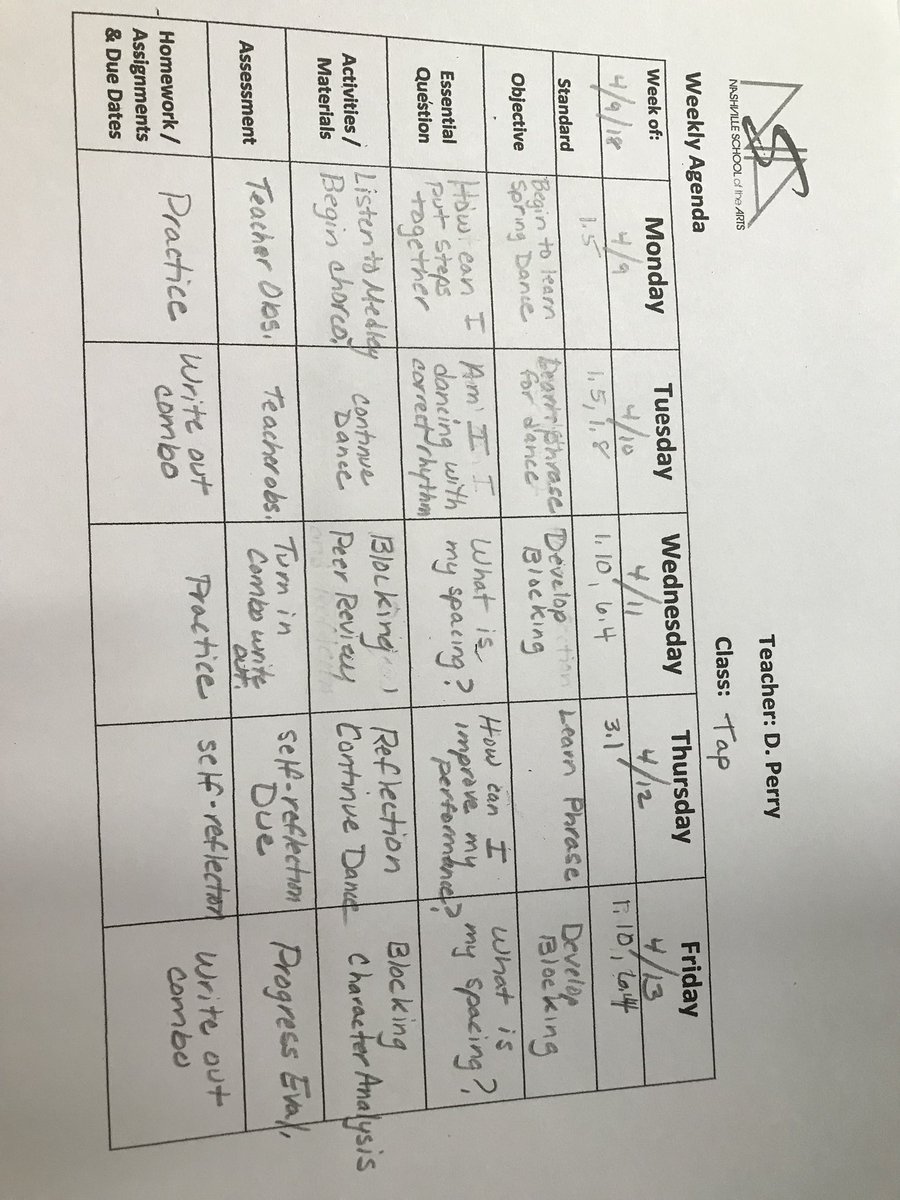 NSA
NASHVILLE SCHOOL of the ARTS
Teacher: D. Perry
Weekly Agenda
Class: Tap
Week of: Monday Tuesday Wednesday Thursday Friday
4/9/18 4/9 4/10 4/11 4/12 4/13
Standard 1.5 1.5, 1.8 1.10, 6.4 3.1 1.10, 6.4
Objective
Begin to learn
Spring Dance
Learn phrase
for dance
Develop
Blocking
Learn Phrase
Develop
Blocking
Essential
Question
How can I
put steps
together
Am I
dancing with
correct rhythm
What is
my spacing?
How can I
improve my
performance?
What is
my spacing?
Activities /
Materials
Listen to Medley
Begin choreo.
continue
Dance
Blocking
Peer Review
Reflection
Continue Dance
Blocking
Character Analysis
Assessment
Teacher Obs.
Teacher obs.
Turn in
Combo write
out.
self-reflection
Due
Progress Eval.
Homework /
Assignments
& Due Dates
Practice
Write out
combo
Practice
self-reflection
Write out
combo